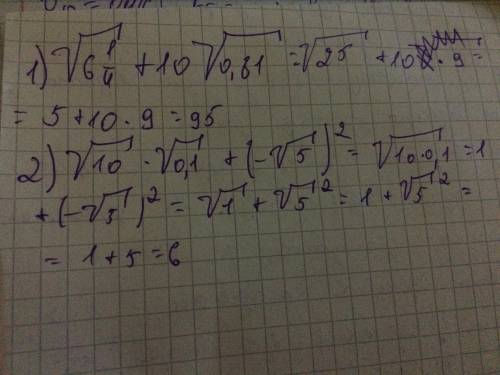 1) √6 1/4 + 10√0,81 = √25 + 10 · 9 =
= 5 + 10 · 9 = 95
2) √10 · √0,1 + (-√5)² = √10·0,1 = 1
+ (-√5)² = √1 + √5² = 1 + √5² =
= 1 + 5 = 6